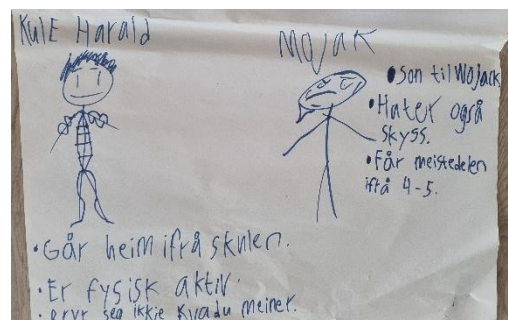 Kule Harald
Mojak
• Son til Wojack
• Hater også
skyss.
• Får meistedelen
ifrå 4-5.
• Går heim ifrå skulen.
• Er fysisk aktiv.
• bryr seg ikkje kva du meiner.